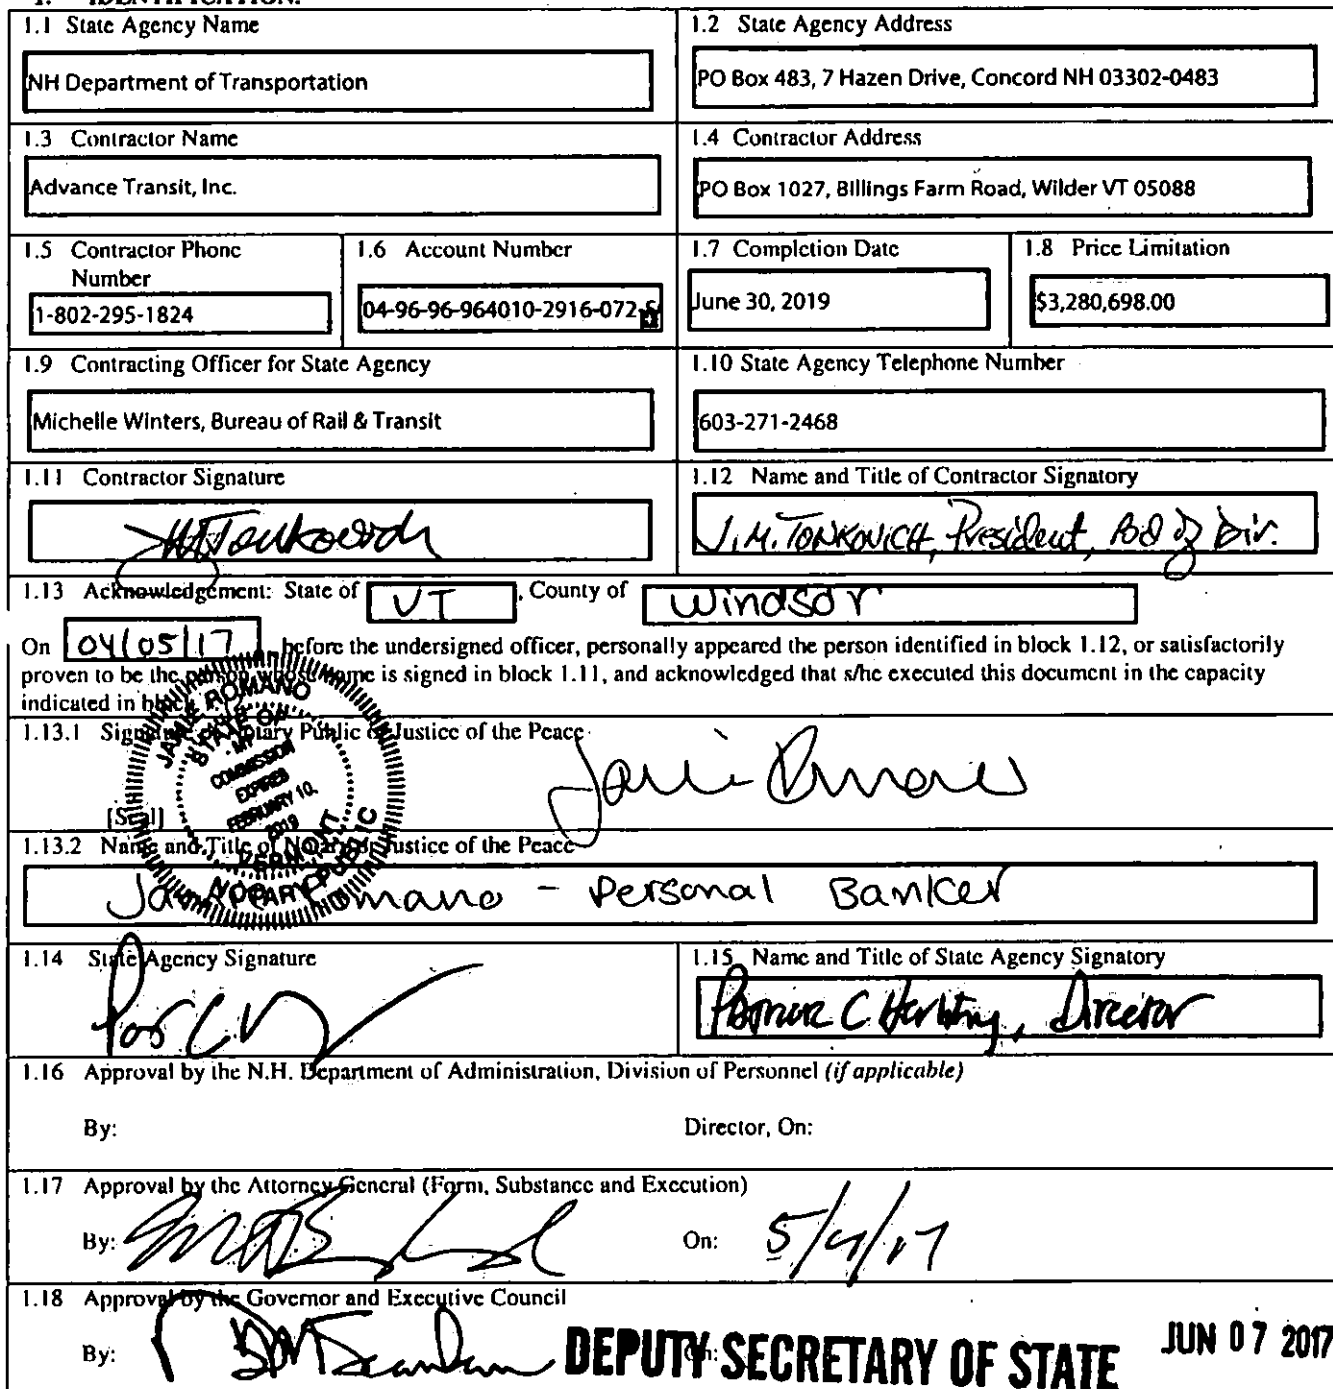 1. IDENTIFICATION.
1.1 State Agency Name
NH Department of Transportation
1.2 State Agency Address
PO Box 483, 7 Hazen Drive, Concord NH 03302-0483
1.3 Contractor Name
Advance Transit, Inc.
1.4 Contractor Address
PO Box 1027, Billings Farm Road, Wilder VT 05088
1.5 Contractor Phone
Number
1-802-295-1824
1.6 Account Number
04-96-96-964010-2916-072-
1.7 Completion Date
June 30, 2019
1.8 Price Limitation
$3,280,698.00
1.9 Contracting Officer for State Agency
Michelle Winters, Bureau of Rail & Transit
1.10 State Agency Telephone Number
603-271-2468
1.11 Contractor Signature
1.12 Name and Title of Contractor Signatory
J.M. TONKOVICH, President, Bd of Dir.
1.13 Acknowledgement: State of VT, County of Windsor
On 04/05/17, before the undersigned officer, personally appeared the person identified in block 1.12, or satisfactorily
proven to be the person whose name is signed in block 1.11, and acknowledged that s/he executed this document in the capacity
indicated in block
1.13.1 Signature of Notary Public or Justice of the Peace
JAMIE ROMANO
STATE OF
MY
COMMISSION
EXPIRES
FEBRUARY 10,
2019
VERMONT
NOTARY PUBLIC
[Seal]
1.13.2 Name and Title of Notary or Justice of the Peace
Jamie Romano - Personal Banker
1.14 State Agency Signature
1.15 Name and Title of State Agency Signatory
Director
1.16 Approval by the N.H. Department of Administration, Division of Personnel (if applicable)
By: Director, On:
1.17 Approval by the Attorney General (Form, Substance and Execution)
By: On: 5/4/17
1.18 Approval by the Governor and Executive Council
By: DEPUTY SECRETARY OF STATE JUN 07 2017